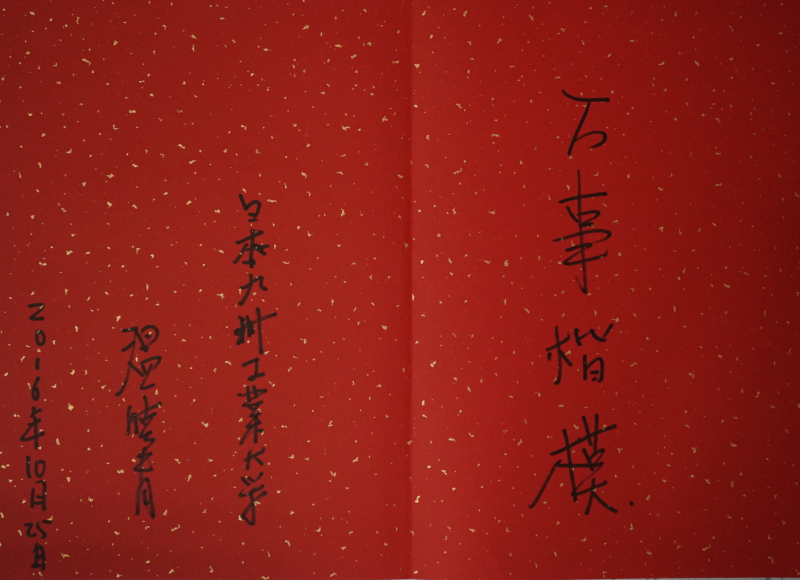 万事楷模.
日本九州工業大学
2016年10月25日